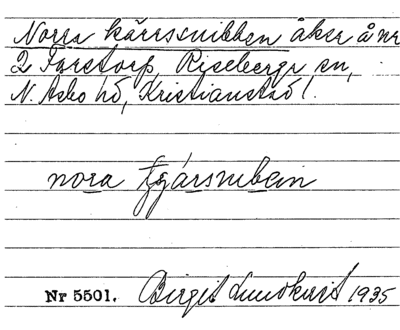 Norra kärrsnibben åker å nr
2 Farstorp, Riseberga sn,
N. Åsbo hd, Kristianstad l.
nora tjársnibein
Nr 5501. Birgit Lundkvist 1935